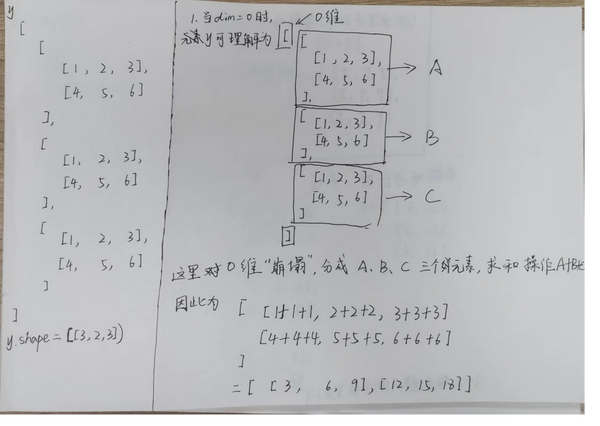 y
[
[
[1, 2, 3],
[4, 5, 6]
],
[
[1, 2, 3],
[4, 5, 6]
],
[
[1, 2, 3],
[4, 5, 6]
]
]
y.shape = ([3,2,3])
1. 当dim=0时, 0维
元素y可理解为 [
[
[1, 2, 3],
[4, 5, 6]
],
A
[
[1, 2, 3],
[4, 5, 6]
],
B
[
[1, 2, 3],
[4, 5, 6]
]
C
]
这里对0维“崩塌”, 分成 A、B、C 三个元素, 求和操作A+B+C
因此为 [ [1+1+1, 2+2+2, 3+3+3]
[4+4+4, 5+5+5, 6+6+6]
]
= [ [3, 6, 9], [12, 15, 18]]